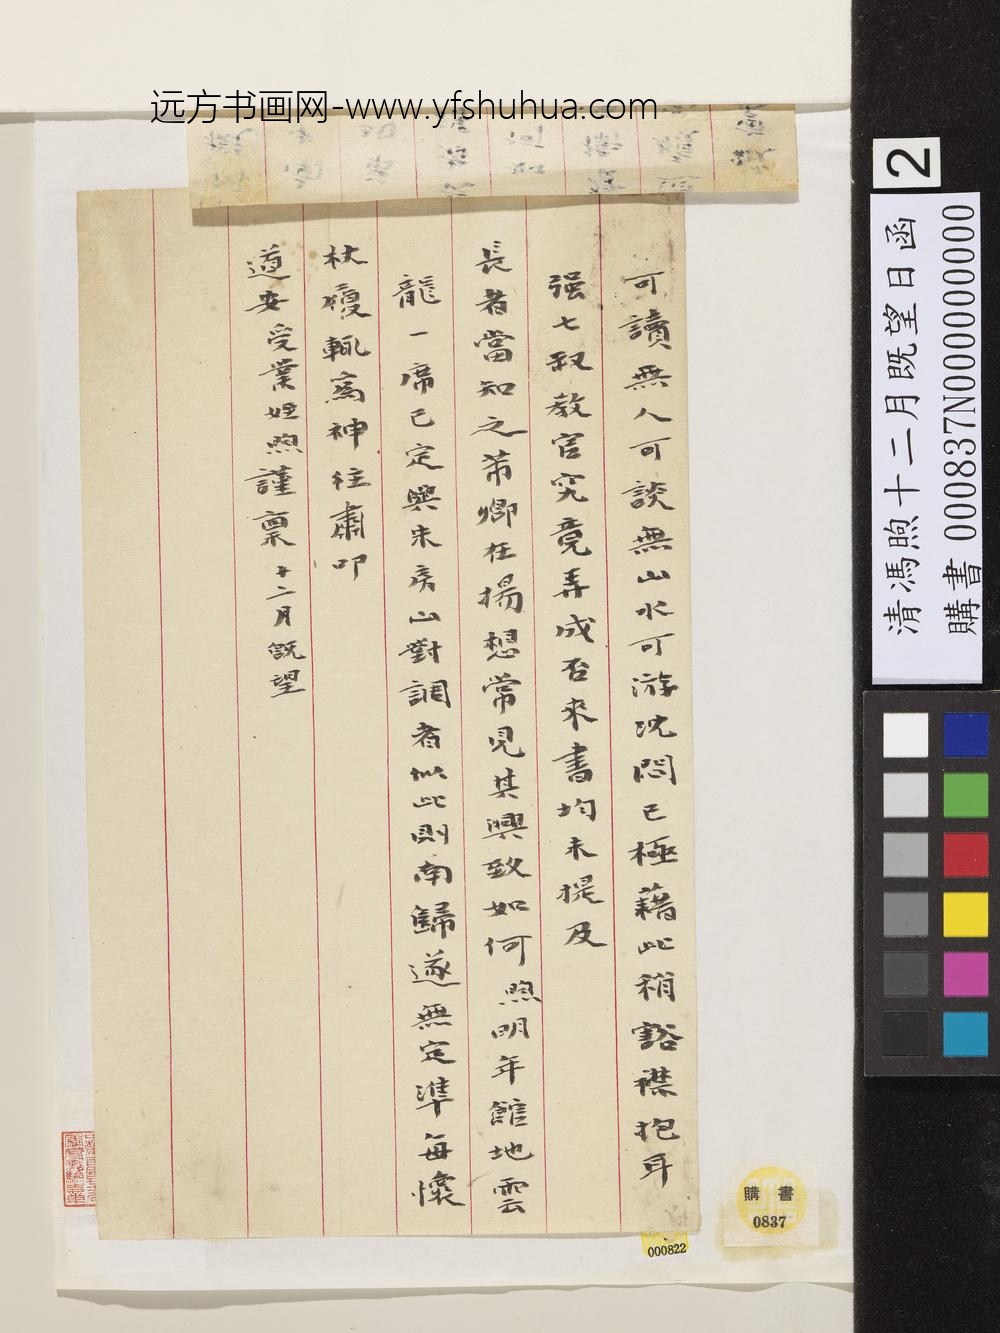 远方书画网-www.yfshuhua.com
可讀無人可談無山水可游沈悶已極藉此稍豁襟抱耳
强七叔教官究竟弄成否來書均未提及
長者當知之芾卿在揚想常見其興致如何照明年館地雲
龍一席已定與朱房山對調者似此則南歸遂無定準每懷
杖履輒為神往肅叩
道安受業姪煦謹稟十二月既望
2
清馮煦十二月既望日函
購書 000837N000000000
購書
0837
000822